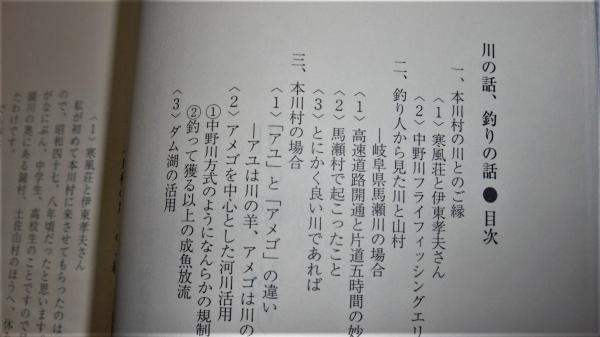 川の話、釣りの話●目次
一、本川村の川とのご縁
〈1〉寒風荘と伊東孝夫さん
〈2〉中野川フライフィッシングエリ
二、釣り人から見た川と山村
―岐阜県馬瀬川の場合
〈1〉高速道路開通と片道五時間の妙
〈2〉馬瀬村で起こったこと
〈3〉とにかく良い川であれば
三、本川村の場合
〈1〉「アユ」と「アメゴ」の違い
―アユは川の羊、アメゴは川の
〈2〉アメゴを中心とした河川活用
①中野川方式のようになんらかの規制
②釣って獲る以上の成魚放流
〈3〉ダム湖の活用
〈1〉寒風荘と伊東孝夫さん
私が初めて本川村に来させてもらったのは
ので、昭和四十七、八年頃だったと思います
がなにぶん、中学生、高校生のことですので
鏡川の奥にある鏡村、土佐山村のほうへ、休
たわけです。